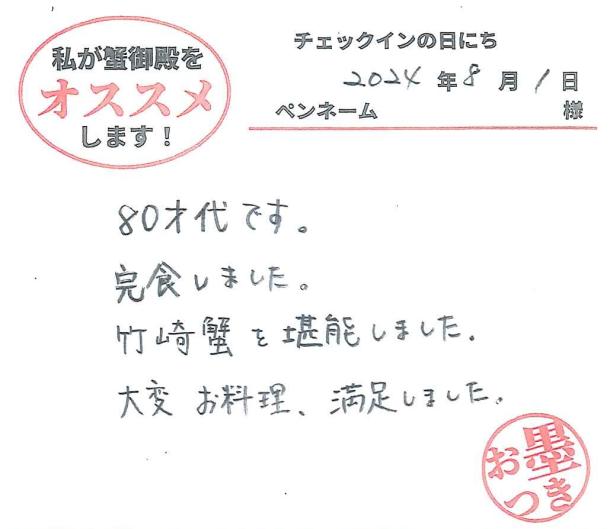 私が蟹御殿を
オススメ
します！
チェックインの日にち
2024年8月1日
ペンネーム 様
80才代です。
完食しました。
竹崎蟹を堪能しました.
大変 お料理、満足しました。
お墨
つき